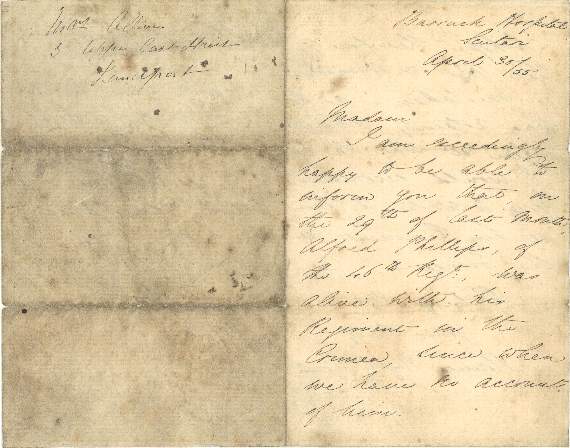 Mrs
3 Upper East Street

Barrack Hospital
Scutari
April 30/55
Madam
I am exceedingly
happy to be able to
inform you that, on
the 29th of last month,
Alfred Phillips, of
the 46th Regt., was
alive with his
Regiment in the
Crimea, since when
we have no account
of him.